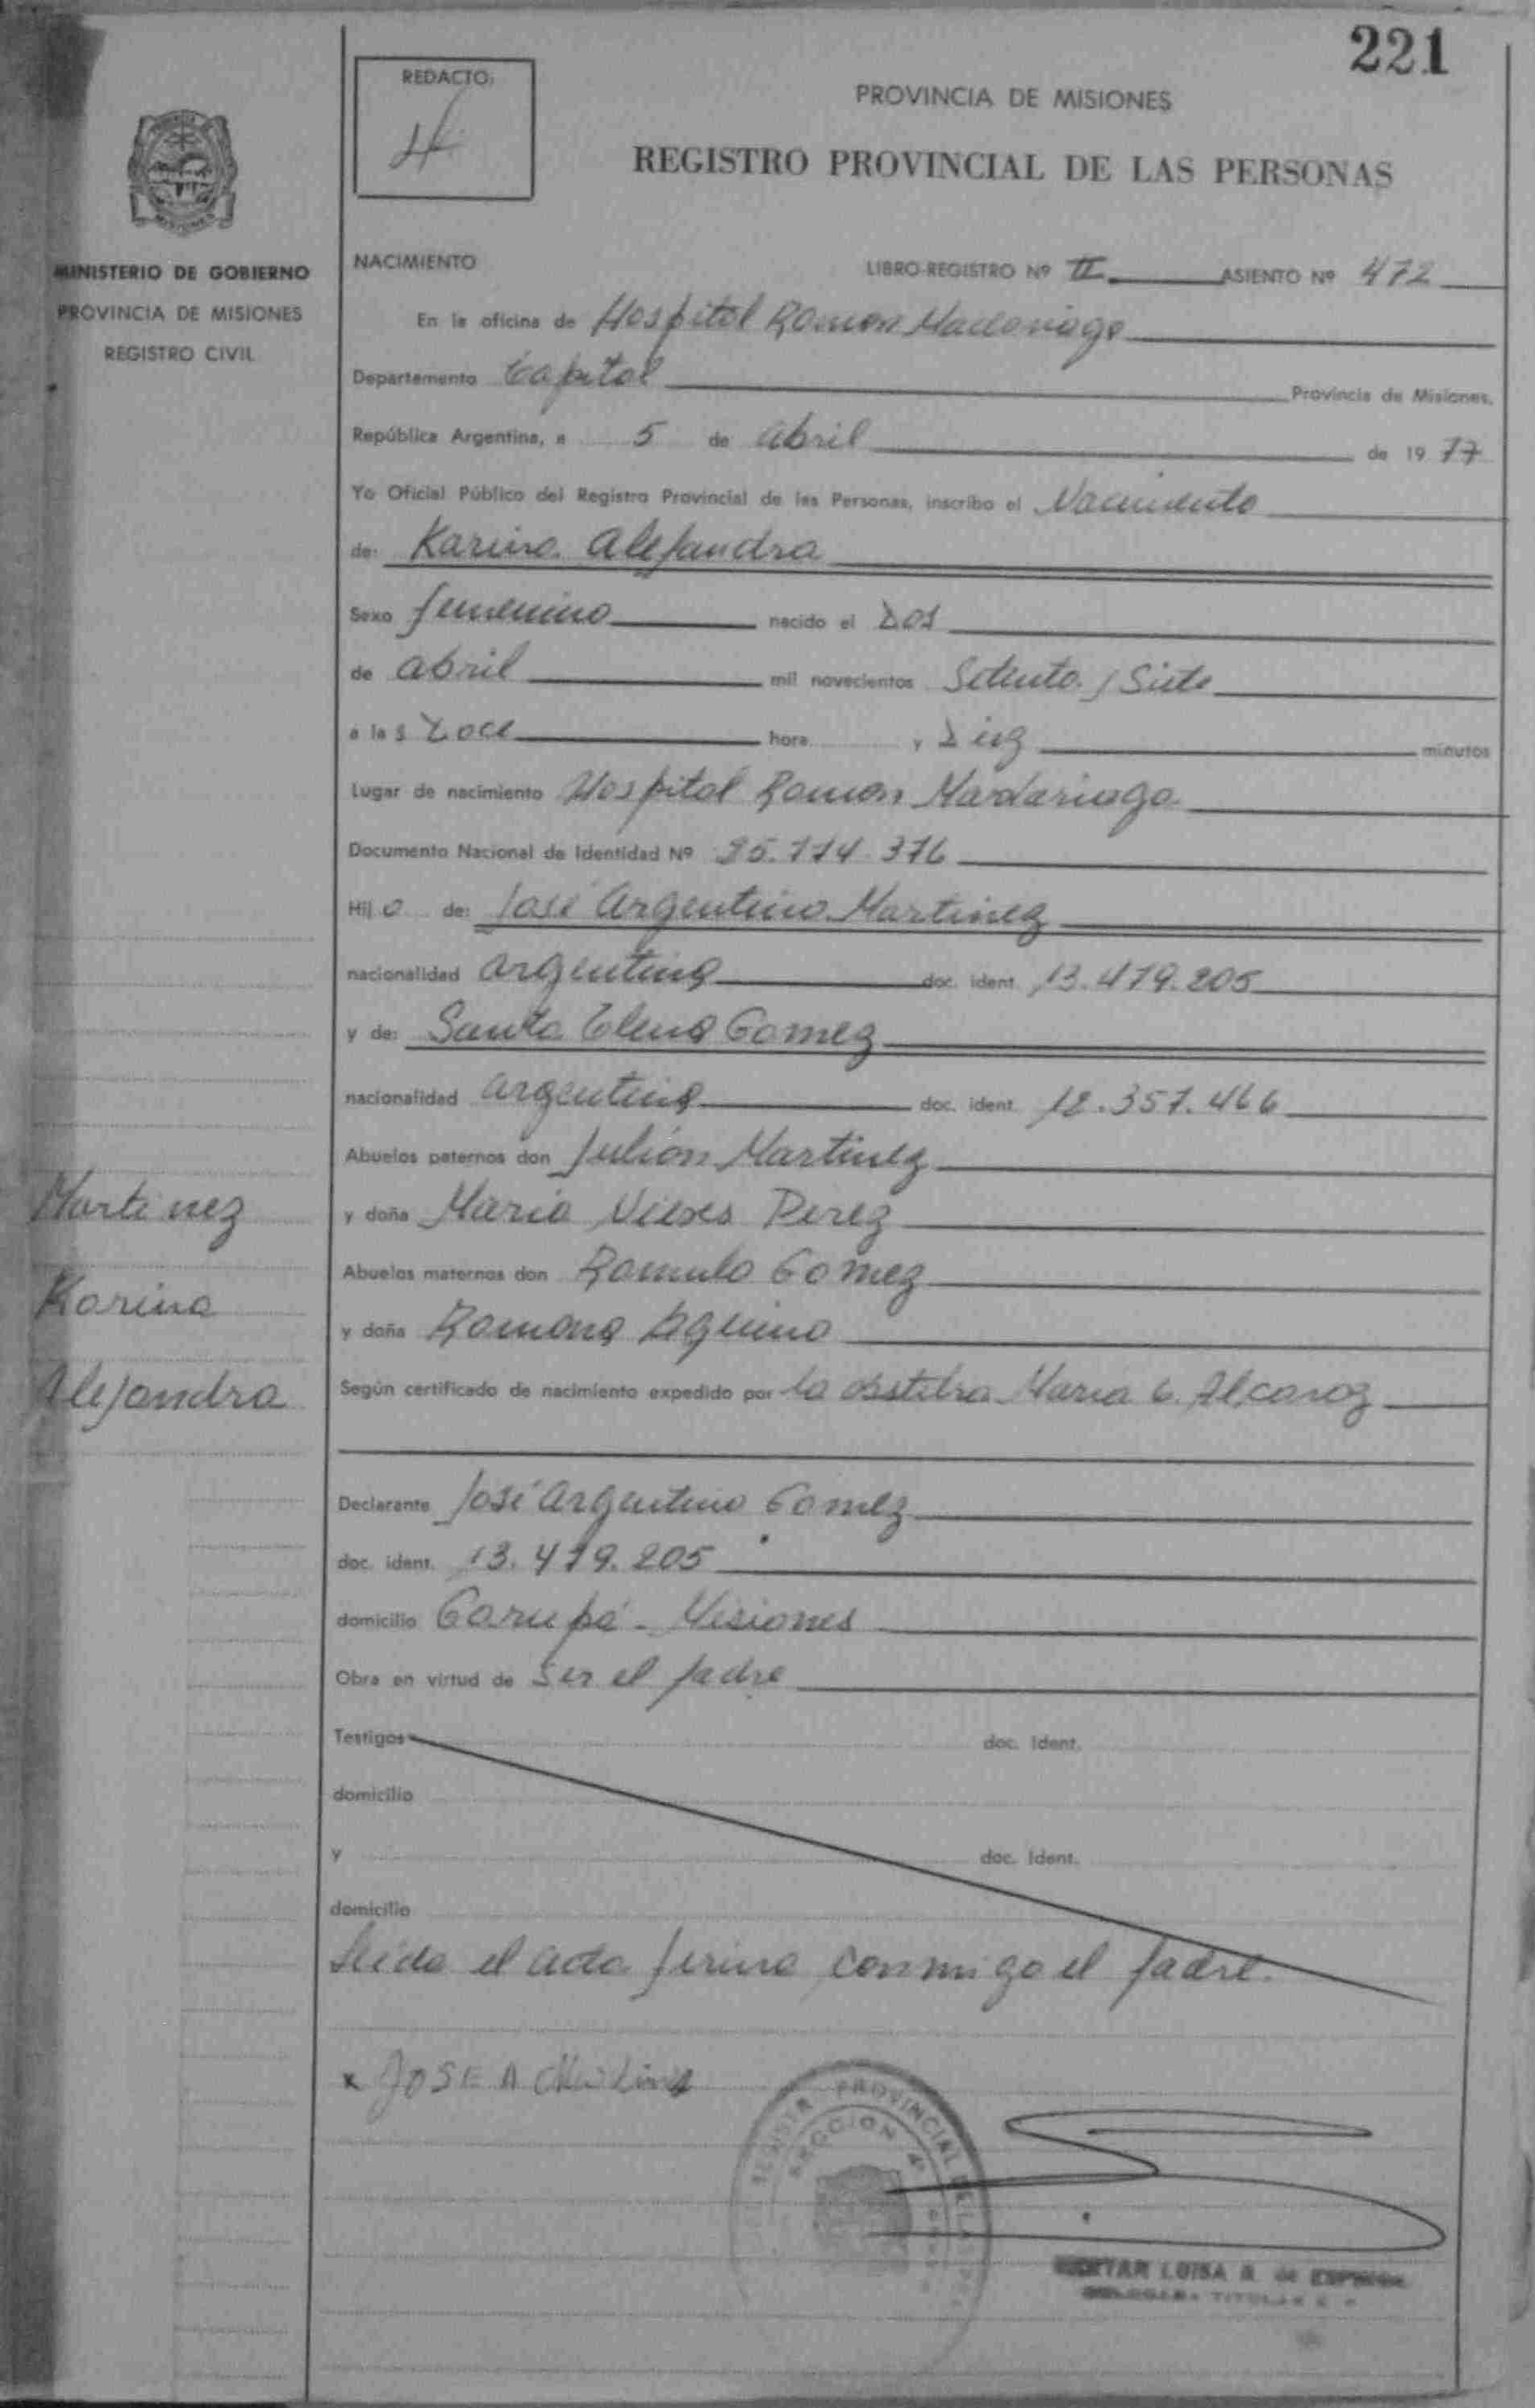 221
REDACTO:
PROVINCIA DE MISIONES
REGISTRO PROVINCIAL DE LAS PERSONAS
MINISTERIO DE GOBIERNO
PROVINCIA DE MISIONES
REGISTRO CIVIL
NACIMIENTO LIBRO-REGISTRO Nº II ASIENTO Nº 472
En la oficina de Hospital Ramon Madariaga
Departamento Capital Provincia de Misiones,
República Argentina, a 5 de abril de 1977
Yo Oficial Público del Registro Provincial de las Personas, inscribo el Nacimiento
de: Karina Alejandra
Sexo femenino nacido el Dos
de abril mil novecientos Setenta y Siete
a las Doce hora y Diez minutos
Lugar de nacimiento Hospital Ramon Madariaga
Documento Nacional de Identidad Nº 376
Hija de: José Argentino Martinez
nacionalidad argentina doc. ident. 13.419.205
y de: Santa Elena Gomez
nacionalidad argentina doc. ident. 12.357.466
Abuelos paternos don Julión Martinez
y doña Maria Nieves Perez
Abuelos maternos don Romulo Gomez
y doña Ramona Aquino
Según certificado de nacimiento expedido por la obstetra Maria G. Alcaraz
Martinez
Karina
Alejandra
Declarante José Argentino Gomez
doc. ident. 13.419.205
domicilio Garupá - Misiones
Obra en virtud de ser el padre
Testigos doc. Ident.
domicilio
y doc. Ident.
domicilio
Leída el acta firma conmigo el padre.
x JOSE A Martinez
PROVINCIAL DE LAS
SECCION 4
LUISA R. de
TITULAR